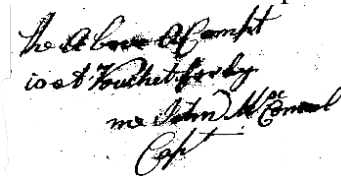 the Above Accompt
is at Vouchet for by
me John McConnel
Capt